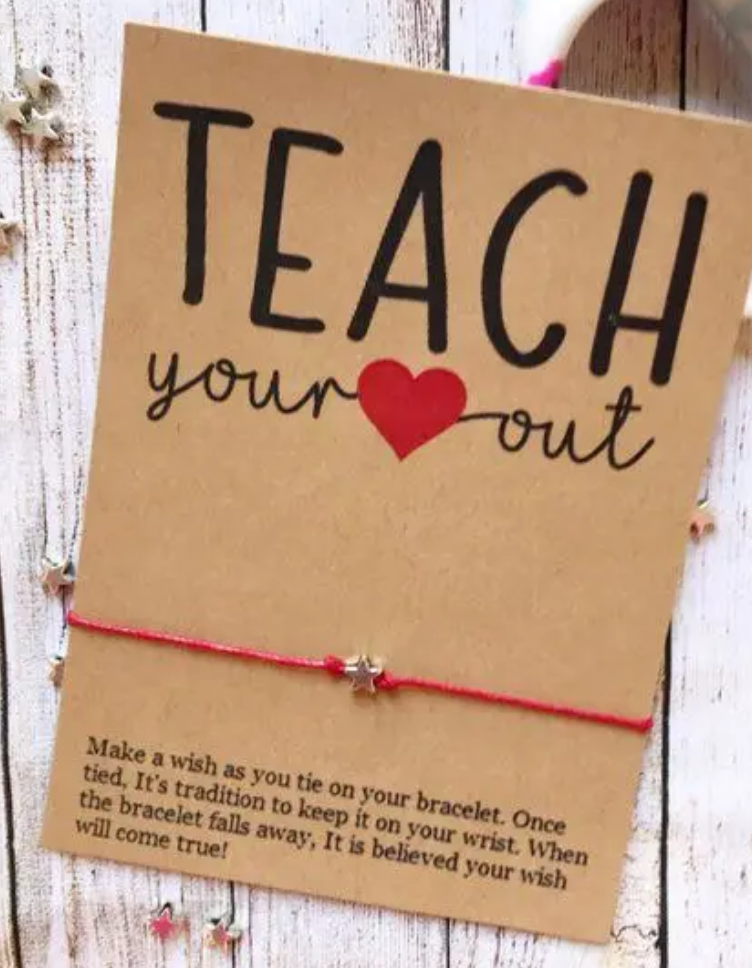 TEACH
your out
Make a wish as you tie on your bracelet. Once
tied, It's tradition to keep it on your wrist. When
the bracelet falls away, It is believed your wish
will come true!